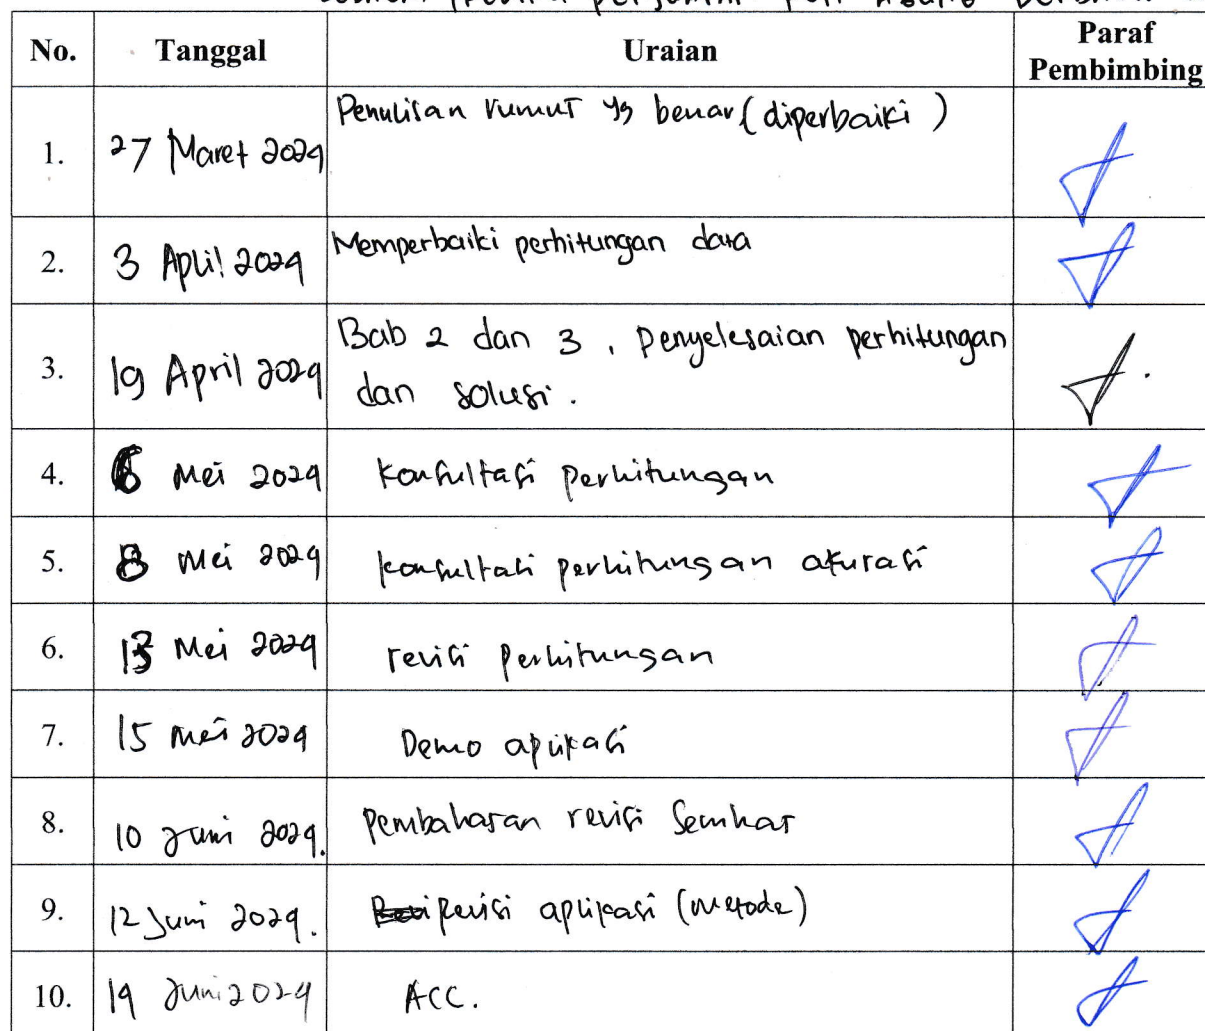 No. Tanggal Uraian Paraf Pembimbing
1. 27 Maret 2024 Penulisan rumus yg benar (diperbaiki)
2. 3 April 2024 Memperbaiki perhitungan data
3. 19 April 2024 Bab 2 dan 3, Penyelesaian perhitungan
dan solusi.
4. 6 Mei 2024 Konsultasi perhitungan
5. 8 Mei 2024 konsultasi perhitungan akurasi
6. 13 Mei 2024 revisi perhitungan
7. 15 Mei 2024 Demo aplikasi
8. 10 Juni 2024. Pembahasan revisi Semhas
9. 12 Juni 2024. Revisi aplikasi (metode)
10. 19 Juni 2024 ACC.